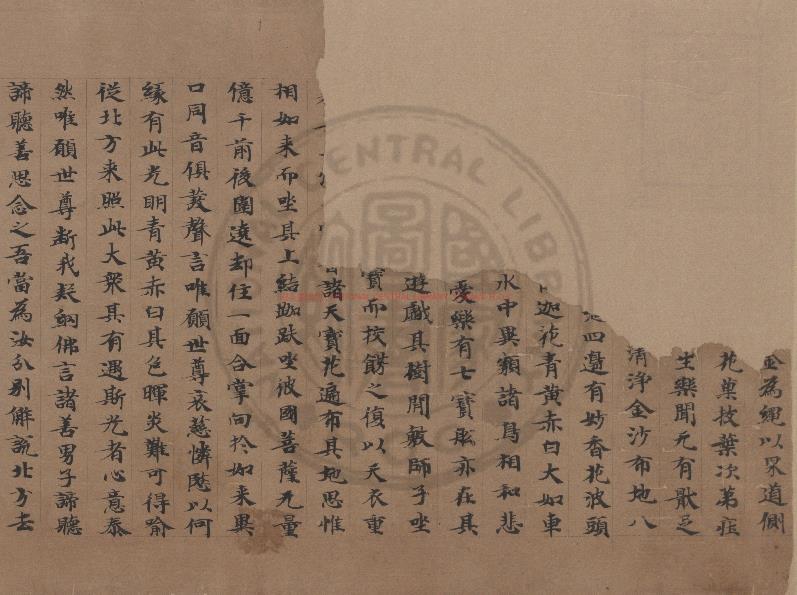 金為繩以界道側
花菓枝葉次第庄
生樂聞无有猒足
清淨金沙布地八
四邊有妙香花波頭
迦花青黃赤白大如車
水中異類諸鳥相和悲
愛樂有七寶舩亦在其
遊戲其樹間敷師子坐
寶而挍餝之復以天衣重
諸天寶花遍布其地思惟
相如来而坐其上結跏趺坐彼國菩薩无量
億千前後圍遶却住一面合掌向扵如来異
口同音俱發聲言唯願世尊哀慈憐愍以何
緣有此光明青黃赤白其色暉炎難可得喻
從北方来照此大衆其有遇斯光者心意泰
然唯願世尊斷我疑網佛言諸善男子諦聽
諦聽善思念之吾當為汝分別解說北方去